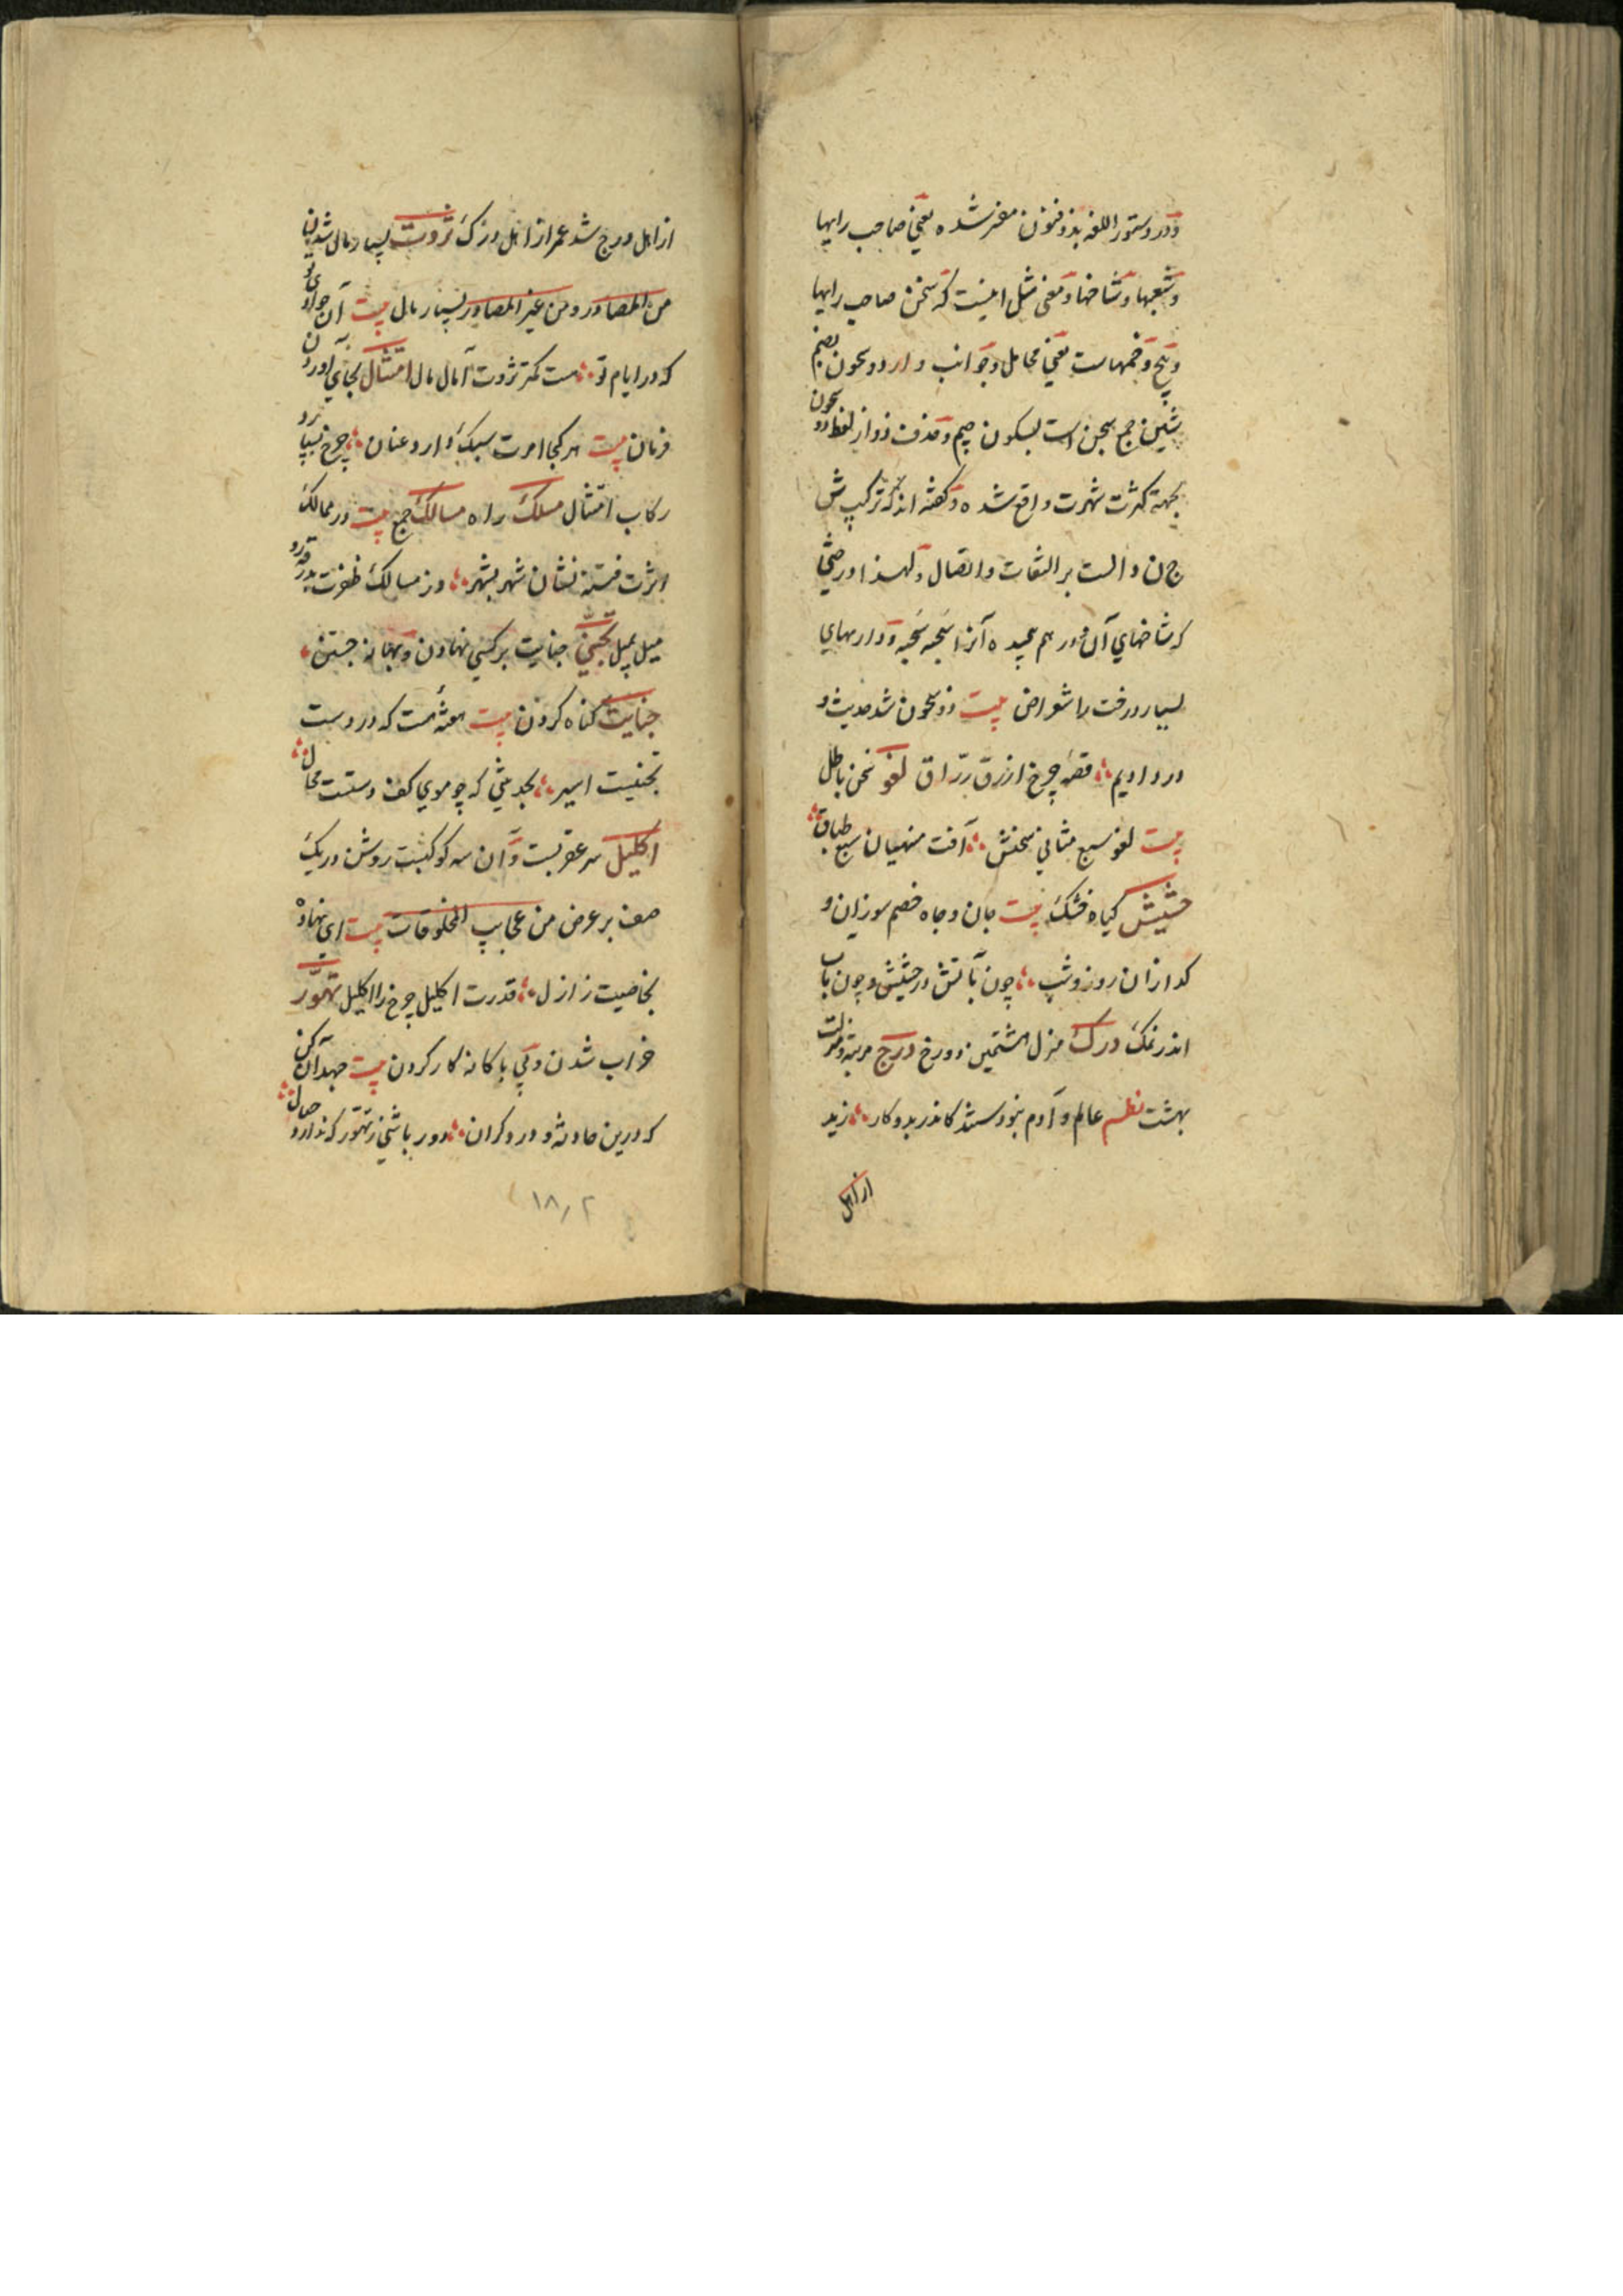 و در دستور اللغه بذو فنون مفسر شده یعنی صاحب رایها
و شعبها و شاخها و معنی مثل اینست که سخن صاحب رایها
و پیچ و خمهاست یعنی محامل و جوانب دارد و شجون بضم
شین جمع شجن است بسکون جیم و حذف ذو از لفظ ذو شجون
بجهة کثرت شهرت واقع شده و گفته اند که ترکیب ش
ج ن دالست بر التفات و اتصال و لهذا درختی
که شاخهای آن در هم پیچیده آنرا شجنه و وادیهای
بسیار درخت را شواجن بیت ذو شجون شد حدیث و
درد ادیم ؞ قصه چرخ ازرق زراق لغو سخن باطل
بیت لغو سبع مثانی سخنش ؞ آفت منهیان سبع طباق ؞
حشیش گیاه خشک بیت جان و جاه خصم سوزان و
گدازان روز و شب ؞ چون بآتش در حشیش و چون بآب
اندر نمک درک منزل هشتمین دوزخ درج مرتبه و منزلت
بهشت نظم عالم و آدم نبودستند کاندر بدو کار ؞ زید
از اهل
از اهل درج شد عمر از اهل درک ثروت بسیار مال شدن
من المصادر و من غیر المصادر بسیار مال بیت آن جوادی تو
که در ایام تو ؞ هست کمتر ثروت آمال مال امتثال بجای آوردن
فرمان بیت هر کجا امرت سبک دارد عنان ؞ چرخ بسپارد
رکاب امتثال مسلک راه مسالک جمع بیت در ممالک
اثرت فتنه نشان شهر بشهر ؞ در مسالک ظفرت بدرقه
میل بمیل تجنی جنایت بر کسی نهادن و بهانه جستن ؞
جنایت گناه کردن بیت فتنه هست که در دست
تجنیت اسیر ؞ بحدیثی که چو موی کف دستت محال ؞
اکلیل سر عقربست و آن سه کوکبست روشن در یک
صف بر عرض من عجایب المخلوقات بیت ای نهاده
بخاصیت ز ازل ؞ قدرت اکلیل چرخ را اکلیل تهور
خراب شدن و بی باکانه کار کردن بیت جهد آن کن
که درین حادثه و دور گران ؞ دور باشی ز تهور که ندارد حال ؞
۱۸۰۲